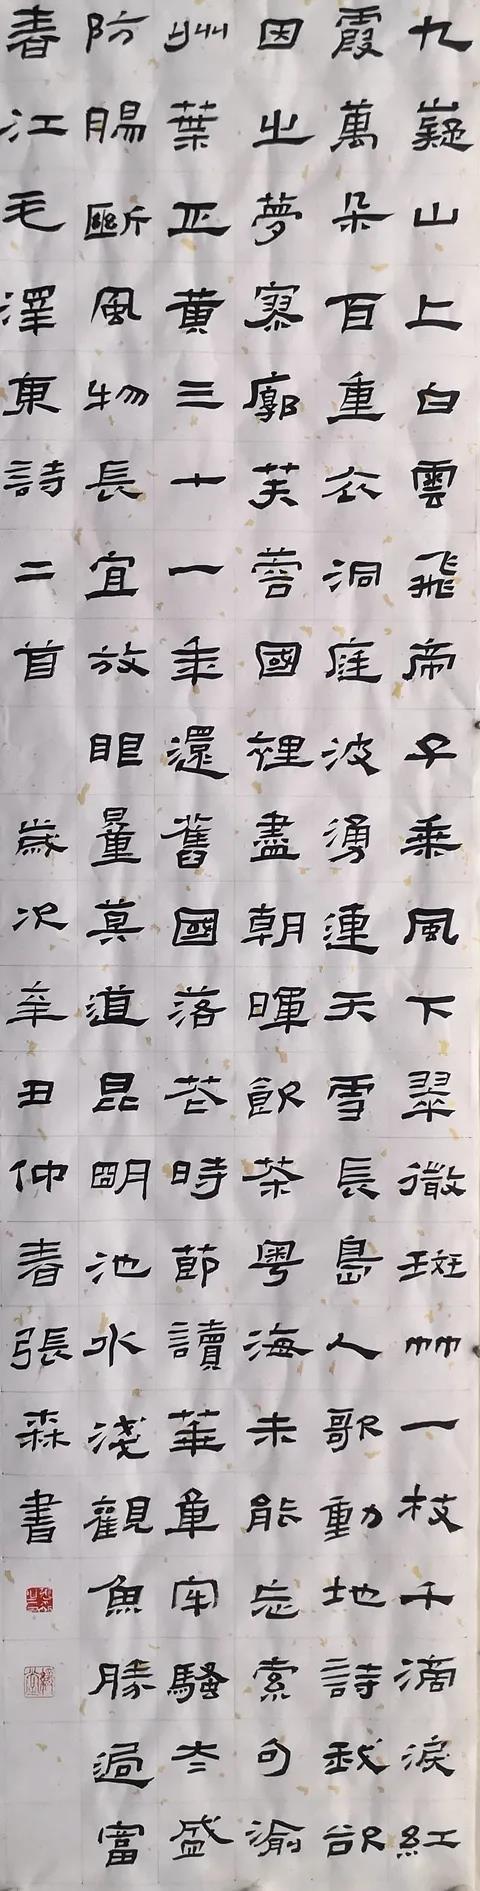 九嶷山上白雲飛帝子乘風下翠微斑竹一枝千滴淚紅
霞萬朵百重衣洞庭波湧連天雪長島人歌動地詩我欲
因之夢寥廓芙蓉國裡盡朝暉飲茶粵海未能忘索句渝
州葉正黃三十一年還舊國落花時節讀華章牢騷太盛
防腸斷風物長宜放眼量莫道昆明池水淺觀魚勝過富
春江毛澤東詩二首 歲次辛丑仲春張森書